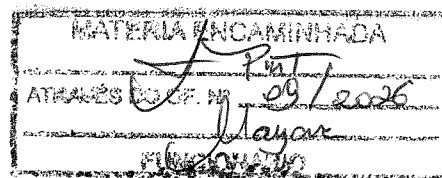 MATÉRIA ENCAMINHADA
ATRAVÉS DO OF. Nº 09/2026
Mayar
FUNCIONÁRIO